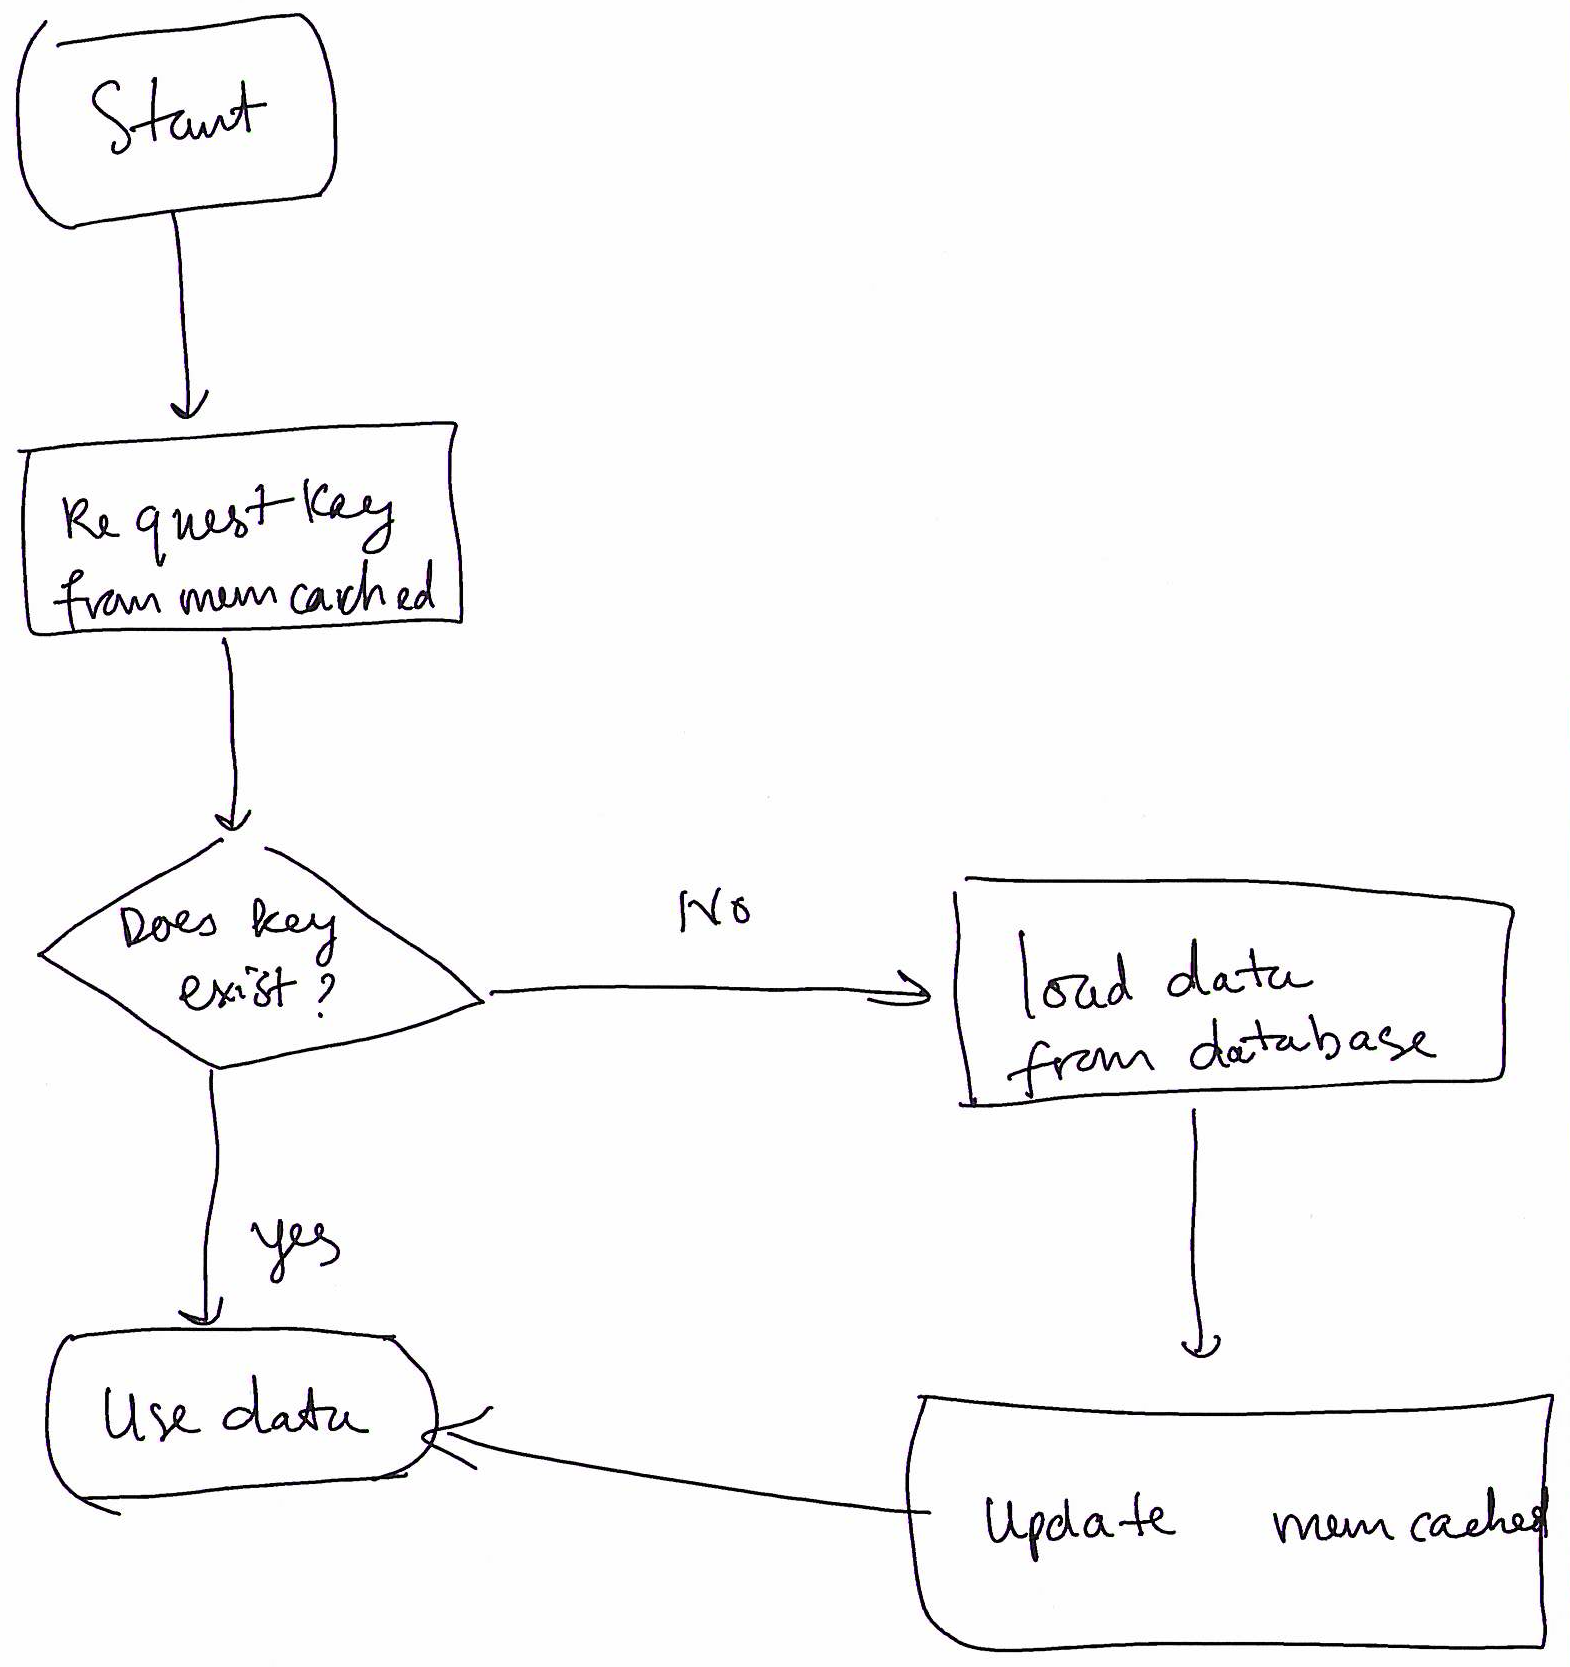 Start
Request Key
from memcached
Does key
exist?
No
load data
from database
yes
Use data
Update memcached